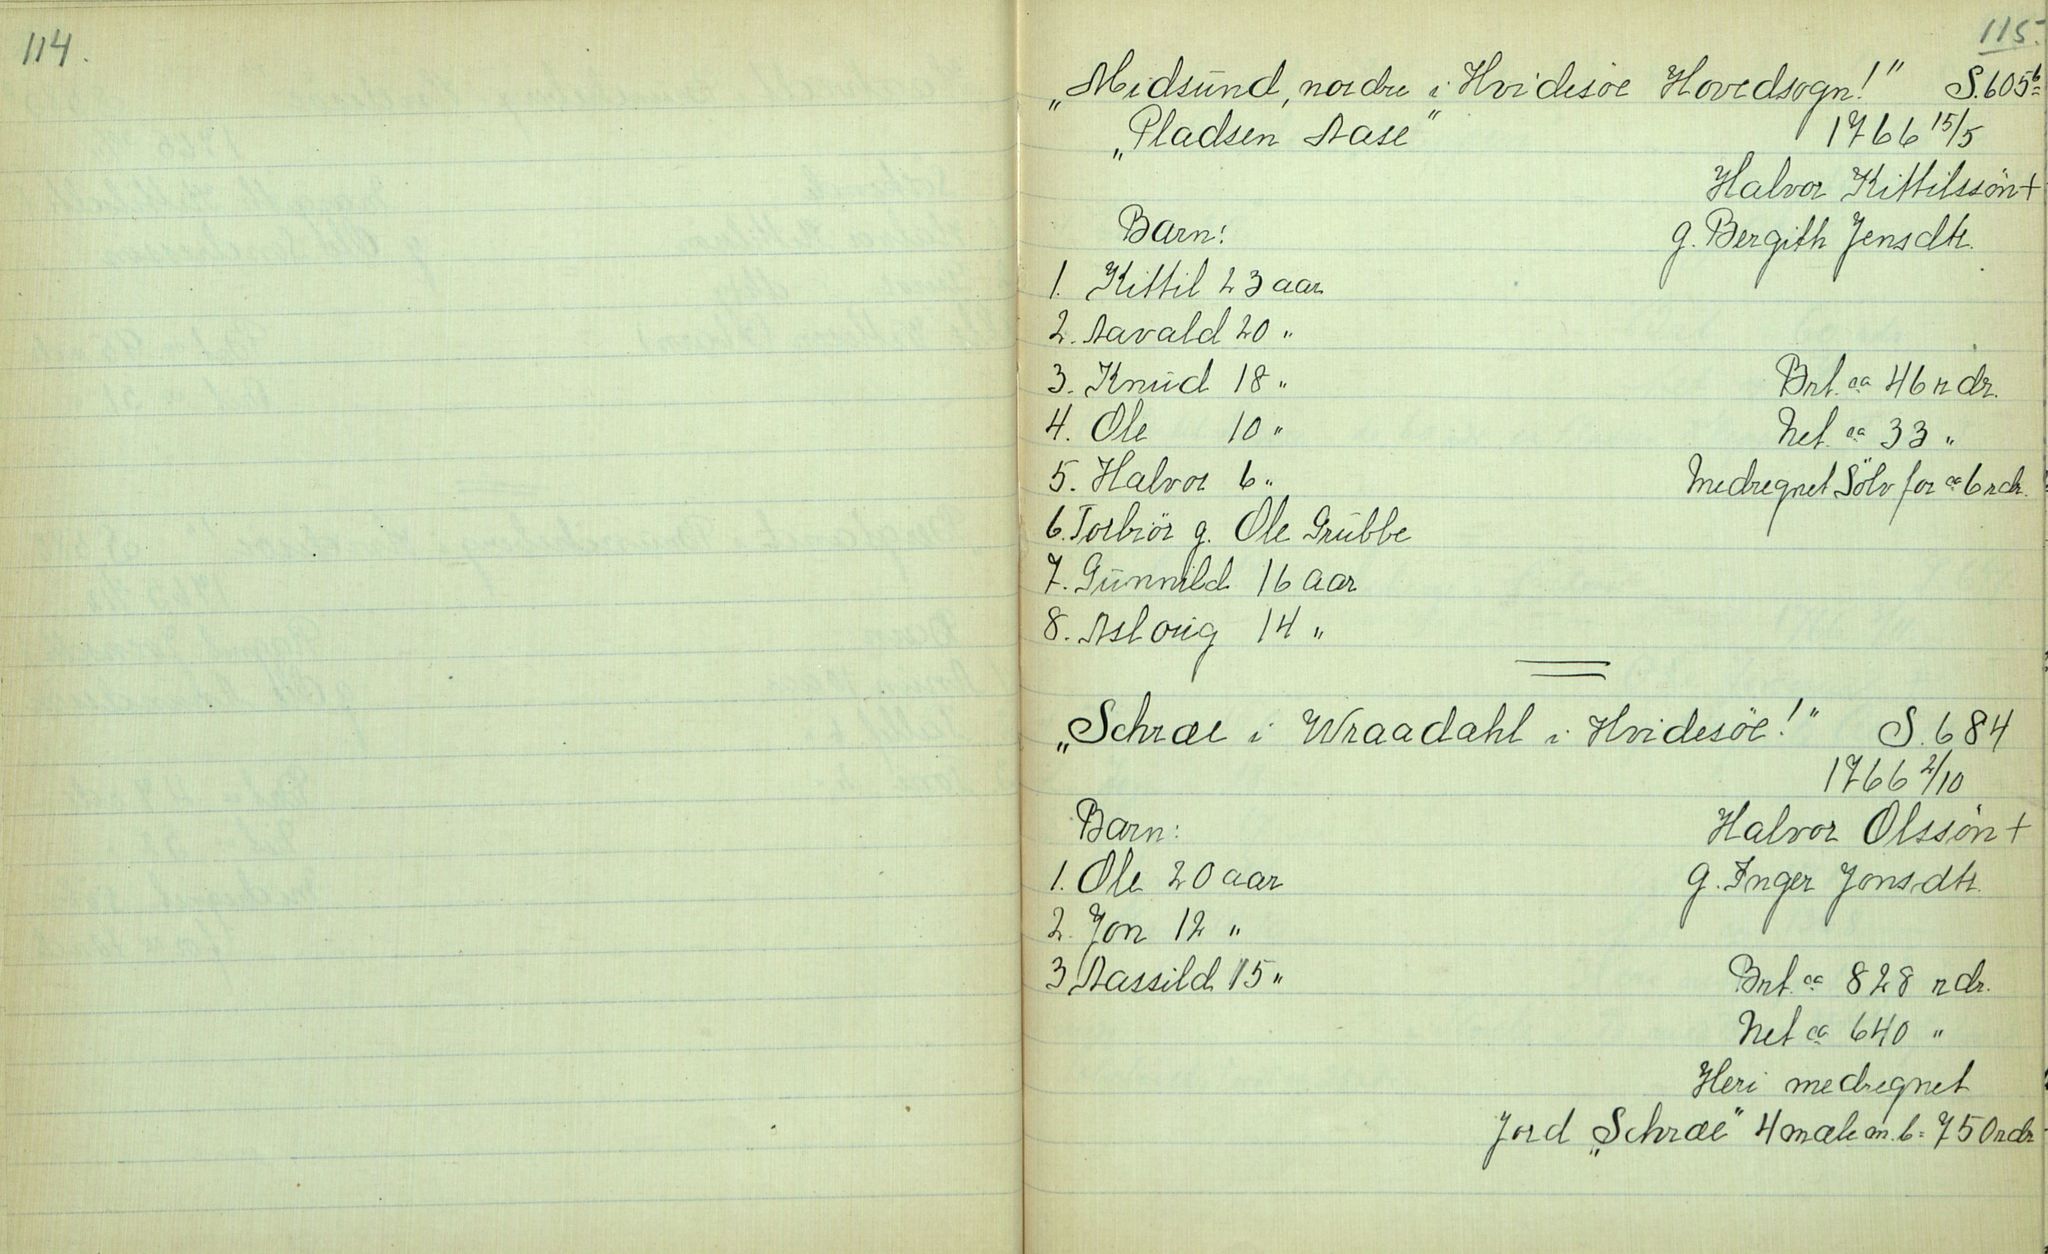 114.
115.
„Midsund, nordre i Hvidesöe Hovedsogn!" S. 605b
„Pladsen Aase" 1766 15/5
Halvor Kittilssön +
Barn: g. Bergith Jensdtr.
1. Kittil 23 aar
2. Aavald 20 "
3. Knud 18 " Brt. ca 46 rdr.
4. Ole 10 " Net. ca 33 "
5. Halvor 6 " Medregnet Sölv for ca 6 rdr.
6. Torbiör g. Ole Grubbe
7. Gunnild 16 aar
8. Asloug 14 "
„Schræe i Wraadahl i Hvidesöe!" S. 684
1766 2/10
Barn: Halvor Olssön +
1. Ole 20 aar g. Inger Jonsdtr.
2. Jon 12 "
3 Aassild 15 " Brt. ca 828 rdr.
Net ca 640 "
Heri medregnet
Jord „Schræe" 4 mæle m. b. = 750 rdr